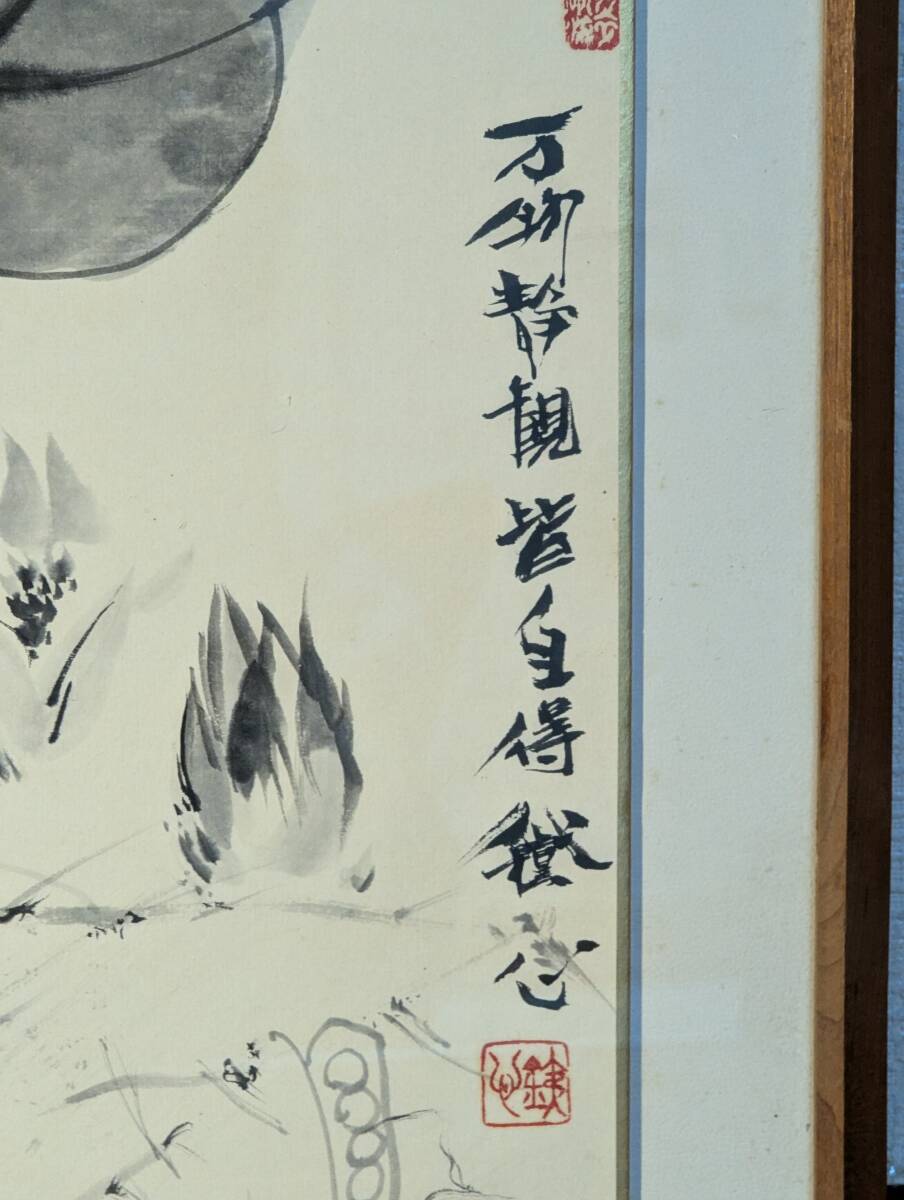 万物静観皆自得
鐵心